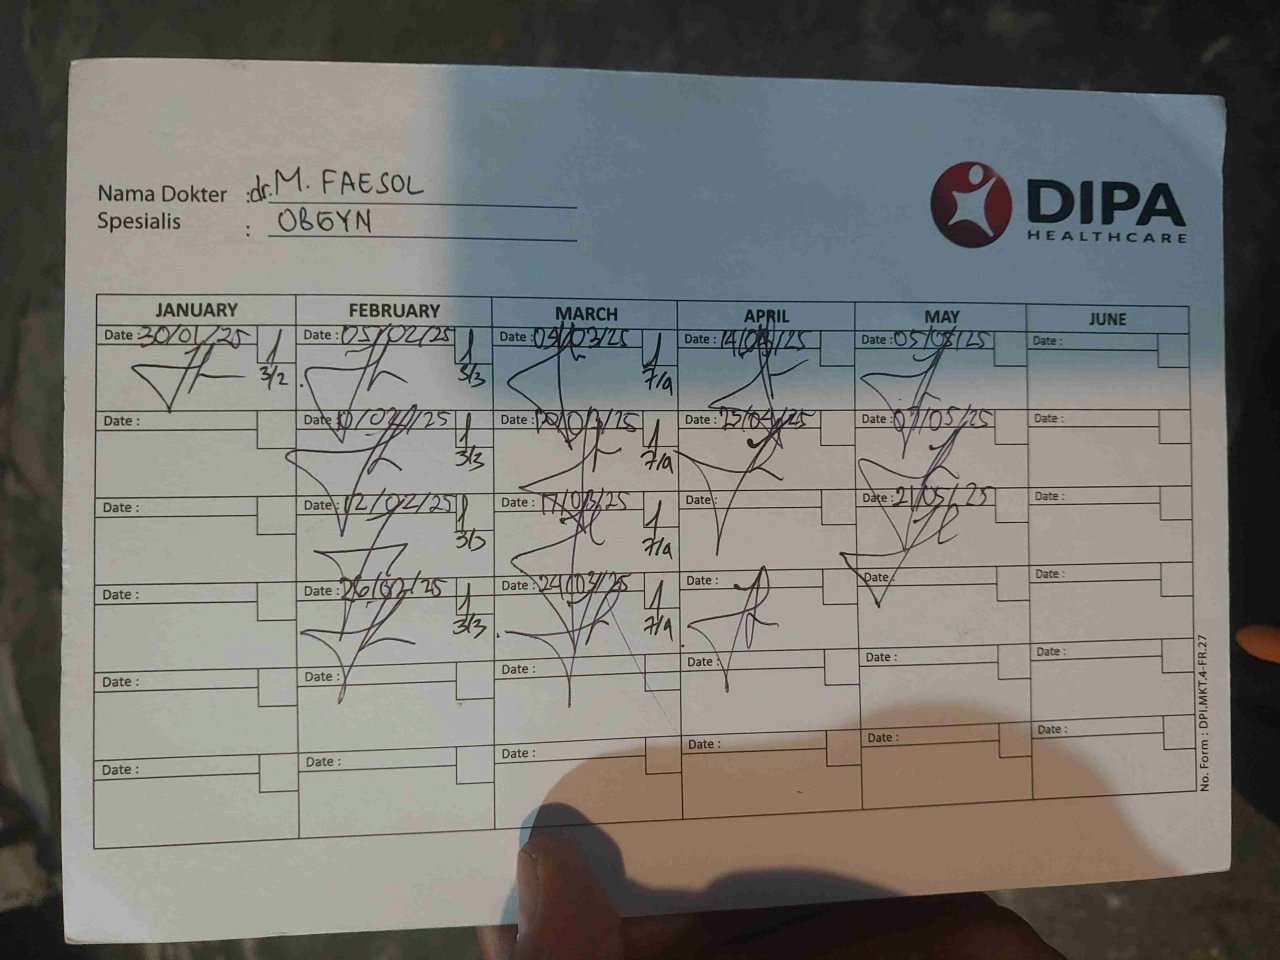 Nama Dokter : dr. M. FAESOL
Spesialis : OBGYN
DIPA
HEALTHCARE
JANUARY FEBRUARY MARCH APRIL MAY JUNE
Date : 30/01/25 1 Date : 05/02/25 1 Date : 1 Date : Date : Date :
3/2 3/3 7/9
Date : Date : 1 Date : 1 Date : Date : 07/05/25 Date :
3/3 7/9
Date : Date : 12/02/25 1 Date : 17/03/25 1 Date : Date : 21/05/25 Date :
3/3 7/9
Date : Date : 26/02/25 1 Date : 24/03/25 1 Date : Date : Date :
3/3 7/9
Date : Date : Date : Date : Date : Date :
Date : Date : Date : Date : Date : Date :
No. Form : DPI.MKT.4-FR.27